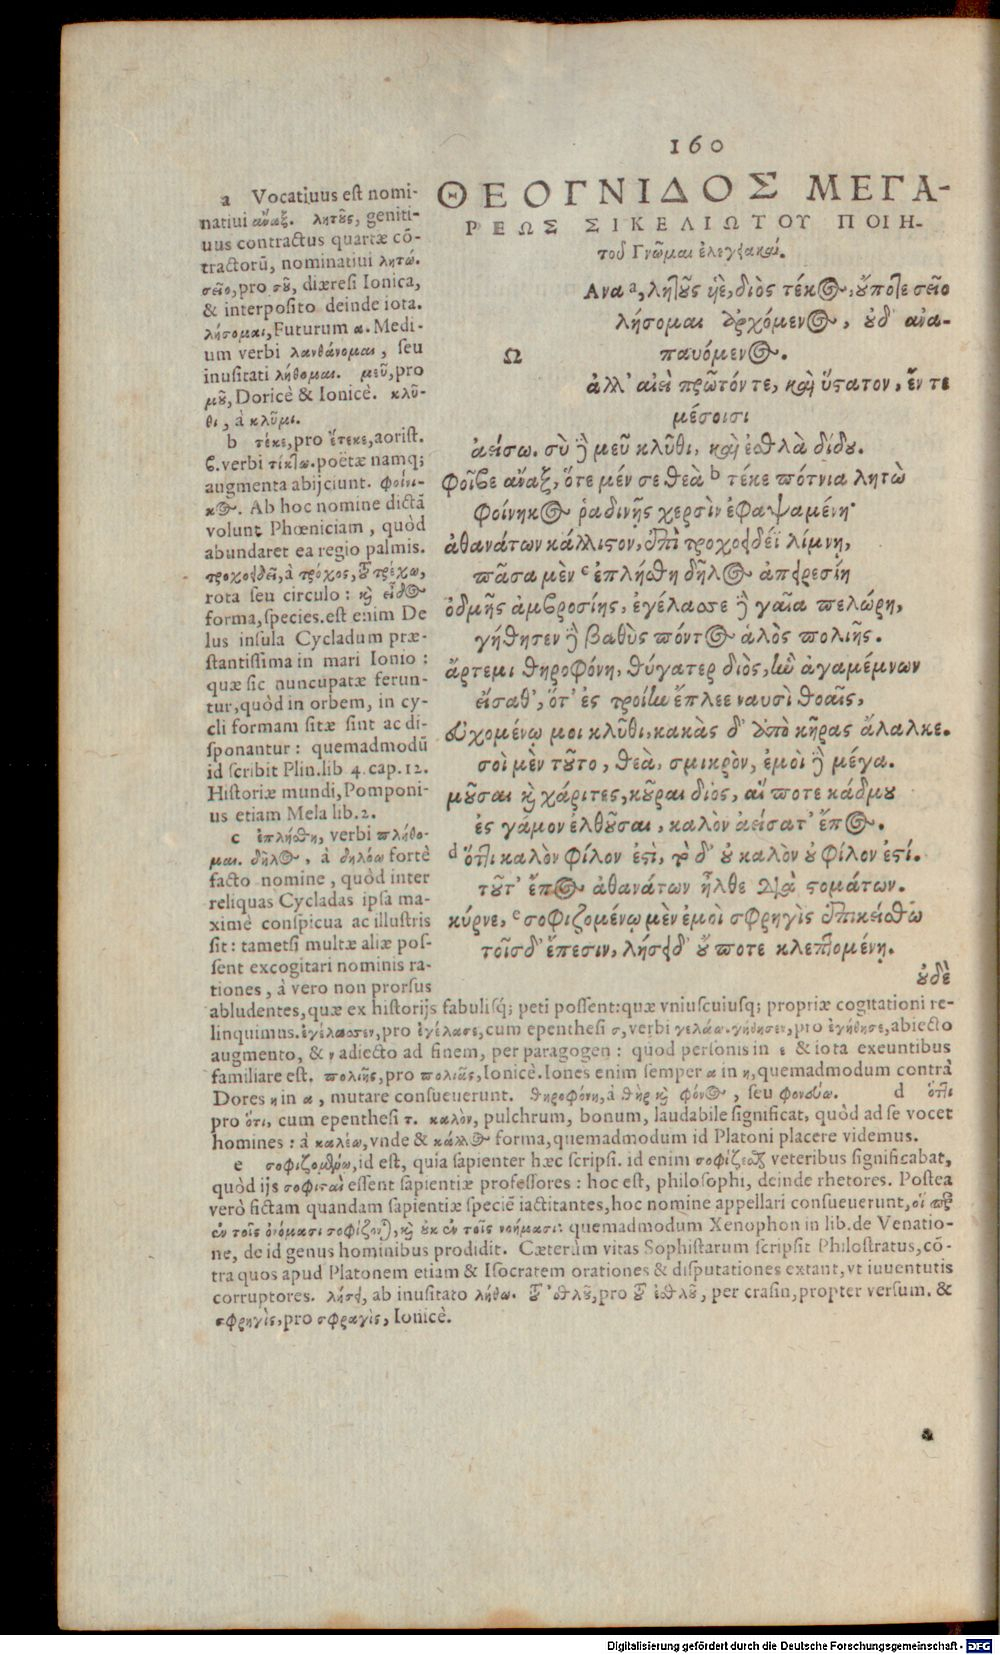 160
ΘΕΟΓΝΙΔΟΣ ΜΕΓΑ-
ΡΕΩΣ ΣΙΚΕΛΙΩΤΟΥ ΠΟΙΗ-
τοῦ Γνῶμαι ἐλεγειακαί.
Ω
Ανα a, λητοῦς υἱὲ, διὸς τέκος, ὔποτε σεῖο
λήσομαι ἀρχόμενος, οὐδ' ἀνα-
παυόμενος.
ἀλλ' αἰεὶ πρῶτόν τε, καὶ ὕστατον, ἔν τε
μέσοισι
ἀείσω. σὺ δὲ μεῦ κλῦθι, καὶ ἐσθλὰ δίδου.
Φοῖβε ἄναξ, ὅτε μέν σε θεὰ b τέκε πότνια λητὼ
Φοίνηκος ῥαδινῆς χερσὶν ἐφαψαμένη·
ἀθανάτων κάλλιστον, ἐπὶ τροχοειδέϊ λίμνῃ,
πᾶσα μὲν c ἐπλήσθη δῆλος ἀπειρεσίη
ὀδμῆς ἀμβροσίης, ἐγέλασσε δὲ γαῖα πελώρη,
γήθησεν δὲ βαθὺς πόντος ἁλὸς πολιῆς.
ἄρτεμι θηροφόνη, θύγατερ διὸς, ἣν ἀγαμέμνων
εἵσαθ', ὅτ' ἐς τροίην ἔπλεε ναυσὶ θοαῖς,
εὐχομένῳ μοι κλῦθι, κακὰς δ' ἀπὸ κῆρας ἄλαλκε.
σοὶ μὲν τοῦτο, θεὰ, σμικρὸν, ἐμοὶ δὲ μέγα.
μοῦσαι καὶ χάριτες, κοῦραι διὸς, αἵ ποτε κάδμου
ἐς γάμον ἐλθοῦσαι, καλὸν ἀείσατ' ἔπος.
d ὅττι καλὸν φίλον ἐστὶ, τὸ δ' οὐ καλὸν οὐ φίλον ἐστί.
τοῦτ' ἔπος ἀθανάτων ἦλθε διὰ στομάτων.
κύρνε, e σοφιζομένῳ μὲν ἐμοὶ σφρηγὶς ἐπικείσθω
τοῖσδ' ἔπεσιν, λήσει δ' οὔποτε κλεπτομένη.
οὐδὲ
a Vocatiuus est nomi-
natiui ἄναξ. λητοῦς, geniti-
uus contractus quartæ cō-
tractorū, nominatiui λητώ.
σεῖο, pro σοῦ, diæresi Ionica,
& interposito deinde iota.
λήσομαι, Futurum α. Medi-
um verbi λανθάνομαι, seu
inusitati λήθομαι. μεῦ, pro
μοῦ, Doricè & Ionicè. κλῦ-
θι, à κλῦμι.
b τέκε, pro ἔτεκε, aorist.
β. verbi τίκτω. poëtæ namq;
augmenta abijciunt. φοίνι-
κος. Ab hoc nomine dictā
volunt Phœniciam, quòd
abundaret ea regio palmis.
τροχοειδεῖ, à τρόχος, τοῦ τρέχω,
rota seu circulo: καὶ εἶδος
forma, species. est enim De
lus insula Cycladum præ-
stantissima in mari Ionio:
quæ sic nuncupatæ ferun-
tur, quòd in orbem, in cy-
cli formam sitæ sint ac di-
sponantur: quemadmodū
id scribit Plin. lib 4. cap. 12.
Historiæ mundi, Pomponi-
us etiam Mela lib. 2.
c ἐπλήσθη, verbi πλήθο-
μαι. δῆλος, à δηλόω fortè
facto nomine, quòd inter
reliquas Cycladas ipsa ma-
ximè conspicua ac illustris
sit: tametsi multæ aliæ pos-
sent excogitari nominis ra-
tiones, à vero non prorsus
abludentes, quæ ex historijs fabulisq́; peti possent: quæ vniuscuiusq; propriæ cogitationi re-
linquimus. ἐγέλασσεν, pro ἐγέλασε, cum epenthesi σ, verbi γελάω. γήθησεν, pro ἐγήθησε, abiecto
augmento, & ν adiecto ad finem, per paragogen: quod personis in ε & iota exeuntibus
familiare est. πολιῆς, pro πολιᾶς, Ionicè. Iones enim semper α in η, quemadmodum contrà
Dores η in α, mutare consueuerunt. θηροφόνη, à θὴρ καὶ φόνος, seu φονεύω. d ὅττι
pro ὅτι, cum epenthesi τ. καλὸν, pulchrum, bonum, laudabile significat, quòd ad se vocet
homines: à καλέω, vnde & κάλλος forma, quemadmodum id Platoni placere videmus.
e σοφιζομένῳ, id est, quia sapienter hæc scripsi. id enim σοφίζεσθαι veteribus significabat,
quòd ijs σοφισταὶ essent sapientiæ professores: hoc est, philosophi, deinde rhetores. Postea
verò fictam quandam sapientiæ speciē iactitantes, hoc nomine appellari consueuerunt, οἱ
ἐν τοῖς ὀνόμασι σοφίζονται, καὶ οὐκ ἐν τοῖς νοήμασι: quemadmodum Xenophon in lib. de Venatio-
ne, de id genus hominibus prodidit. Cæterùm vitas Sophistarum scripsit Philostratus, cō-
tra quos apud Platonem etiam & Isocratem orationes & disputationes extant, vt iuuentutis
corruptores. λήσει, ab inusitato λήθω. τοῦ 'σθλοῦ, pro τοῦ ἐσθλοῦ, per crasin, propter versum. &
σφρηγὶς, pro σφραγὶς, Ionicè.
Digitalisierung gefördert durch die Deutsche Forschungsgemeinschaft - DFG